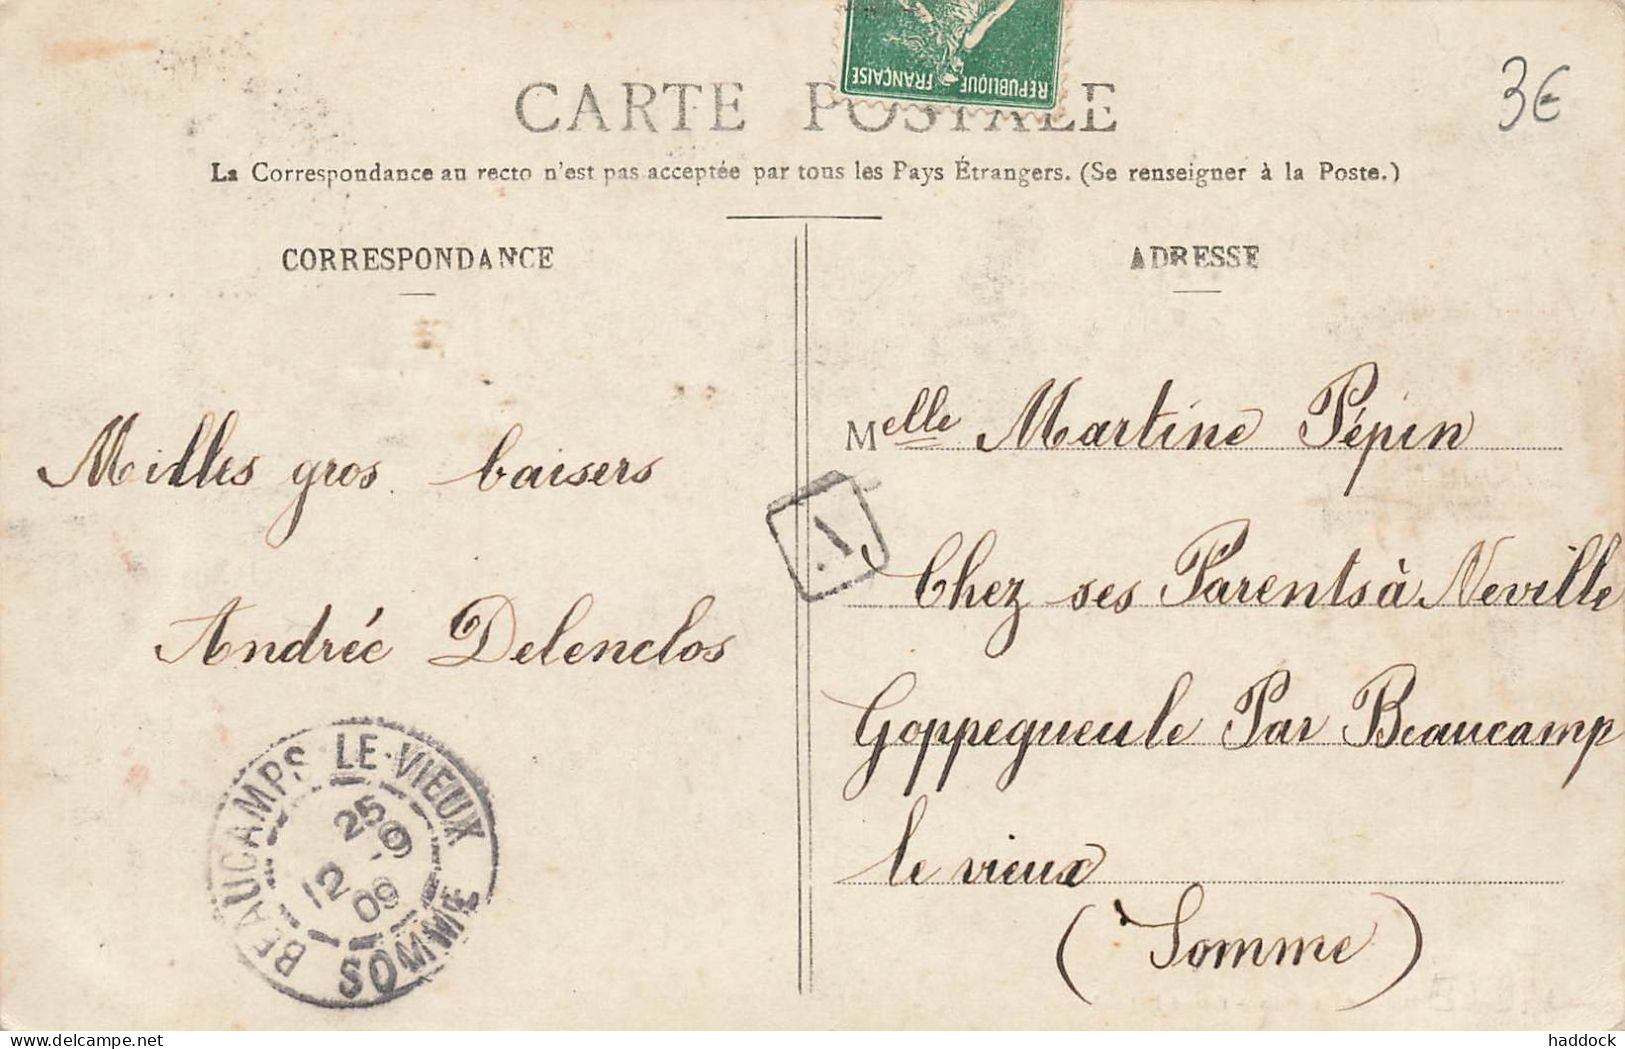 REPUBLIQUE FRANÇAISE
3€
CARTE POSTALE
La Correspondance au recto n'est pas acceptée par tous les Pays Étrangers. (Se renseigner à la Poste.)
CORRESPONDANCE
Milles gros baisers
Andrée Delenclos
BEAUCAMPS-LE-VIEUX
25-9
12
09
SOMME
ADRESSE
Melle Martine Pépin
Chez ses Parents à Neville
Goppegueule Par Beaucamp
le vieux
(Somme)
delcampe.net
haddock